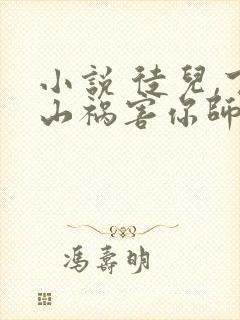 小說 徒兒,下
山禍害你師
馮壽明